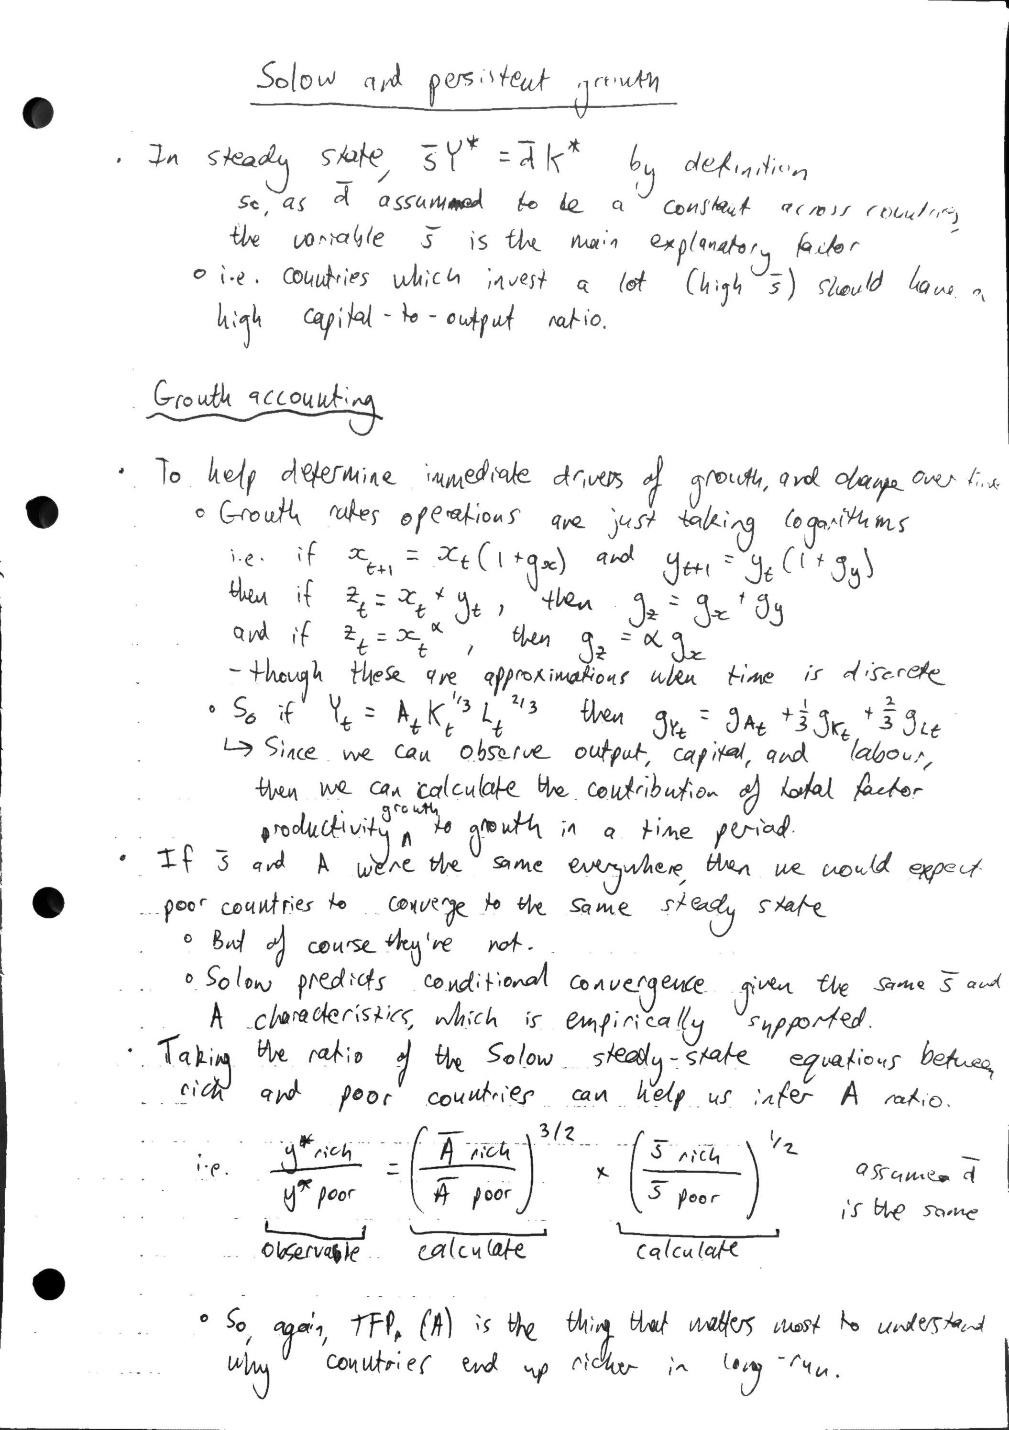 Solow and persistent growth
· In steady state, s̄Y* = d̄K* by definition
so, as d̄ assumed to be a constant across countries,
the variable s̄ is the main explanatory factor
o i.e. countries which invest a lot (high s̄) should have a
high capital-to-output ratio.
Growth accounting
· To help determine immediate drivers of growth, and change over time
o Growth rates operations are just taking logarithms
i.e. if xₜ₊₁ = xₜ(1+gₓ) and yₜ₊₁ = yₜ(1+g_y)
then if zₜ = xₜ × yₜ, then g_z = gₓ + g_y
and if zₜ = xₜ^α, then g_z = α gₓ
- though these are approximations when time is discrete
o So if Yₜ = Aₜ Kₜ^1/3 Lₜ^2/3 then g_Yₜ = g_Aₜ + 1/3 g_Kₜ + 2/3 g_Lₜ
↳ Since we can observe output, capital, and labour,
then we can calculate the contribution of total factor
productivity growth to growth in a time period.
· If s̄ and A were the same everywhere, then we would expect
poor countries to converge to the same steady state
o But of course they're not.
o Solow predicts conditional convergence given the same s̄ and
A characteristics, which is empirically supported.
· Taking the ratio of the Solow steady-state equations between
rich and poor countries can help us infer A ratio.
i.e. y* rich / y* poor = (Ā rich / Ā poor)^3/2 × (s̄ rich / s̄ poor)^1/2 assumes d̄
is the same
observable calculate calculate
o So, again, TFP, (A) is the thing that matters most to understand
why countries end up richer in long-run.